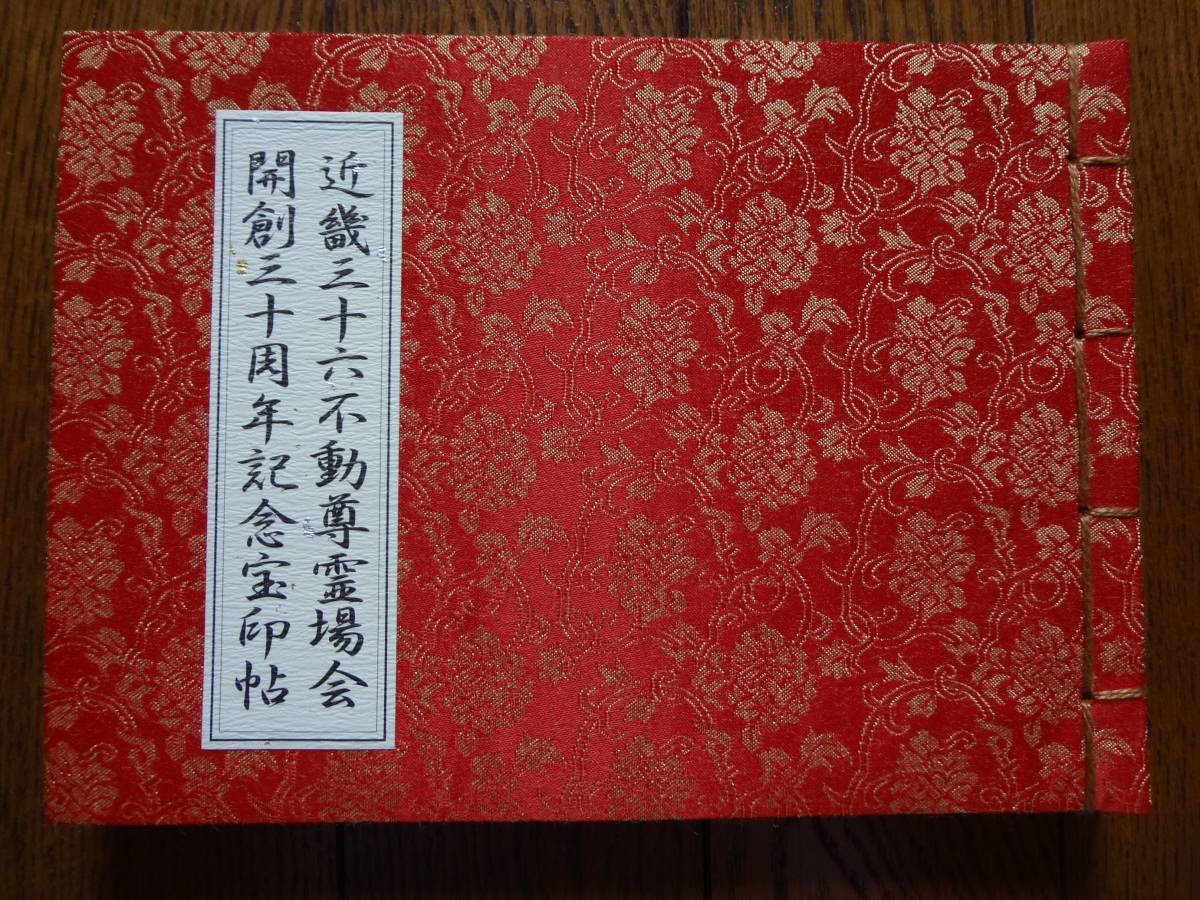 近畿三十六不動尊霊場会
開創三十周年記念宝印帖